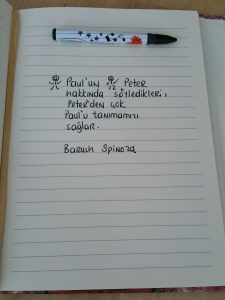 Paul'un Peter
hakkında söyledikleri,
Peter'den çok
Paul'u tanımamızı
sağlar.
Baruch Spinoza